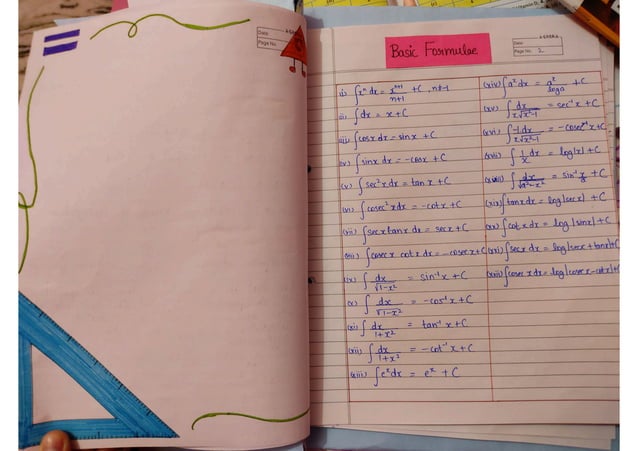 Date
Page No.
Basic Formulae
Date
Page No. 2
(i) ∫xⁿ dx = xⁿ⁺¹/n+1 + C, n≠-1
(ii) ∫dx = x + C
(iii) ∫cosx dx = sinx + C
(iv) ∫sinx dx = -cosx + C
(v) ∫sec²x dx = tan x + C
(vi) ∫cosec²x dx = -cotx + C
(vii) ∫secx tanx dx = secx + C
(viii) ∫cosec x cotx dx = -cosecx + C
(ix) ∫dx/√1-x² = sin⁻¹x + C
(x) ∫dx/√1-x² = -cos⁻¹x + C
(xi) ∫dx/1+x² = tan⁻¹x + C
(xii) ∫dx/1+x² = -cot⁻¹x + C
(xiii) ∫eˣdx = eˣ + C
(xiv) ∫aˣdx = aˣ/loga + C
(xv) ∫dx/x√x²-1 = sec⁻¹x + C
(xvi) ∫-1dx/x√x²-1 = -cosec⁻¹x + C
(xvii) ∫1/x dx = log|x| + C
∫dx/√a²-x² = sin⁻¹ x/a + C
(xix) ∫tanx dx = log|secx| + C
(xx) ∫cotx dx = log|sinx| + C
(xxi) ∫secx dx = log|secx + tanx| + C
(xxii) ∫cosecx dx = log|cosecx - cotx| + C